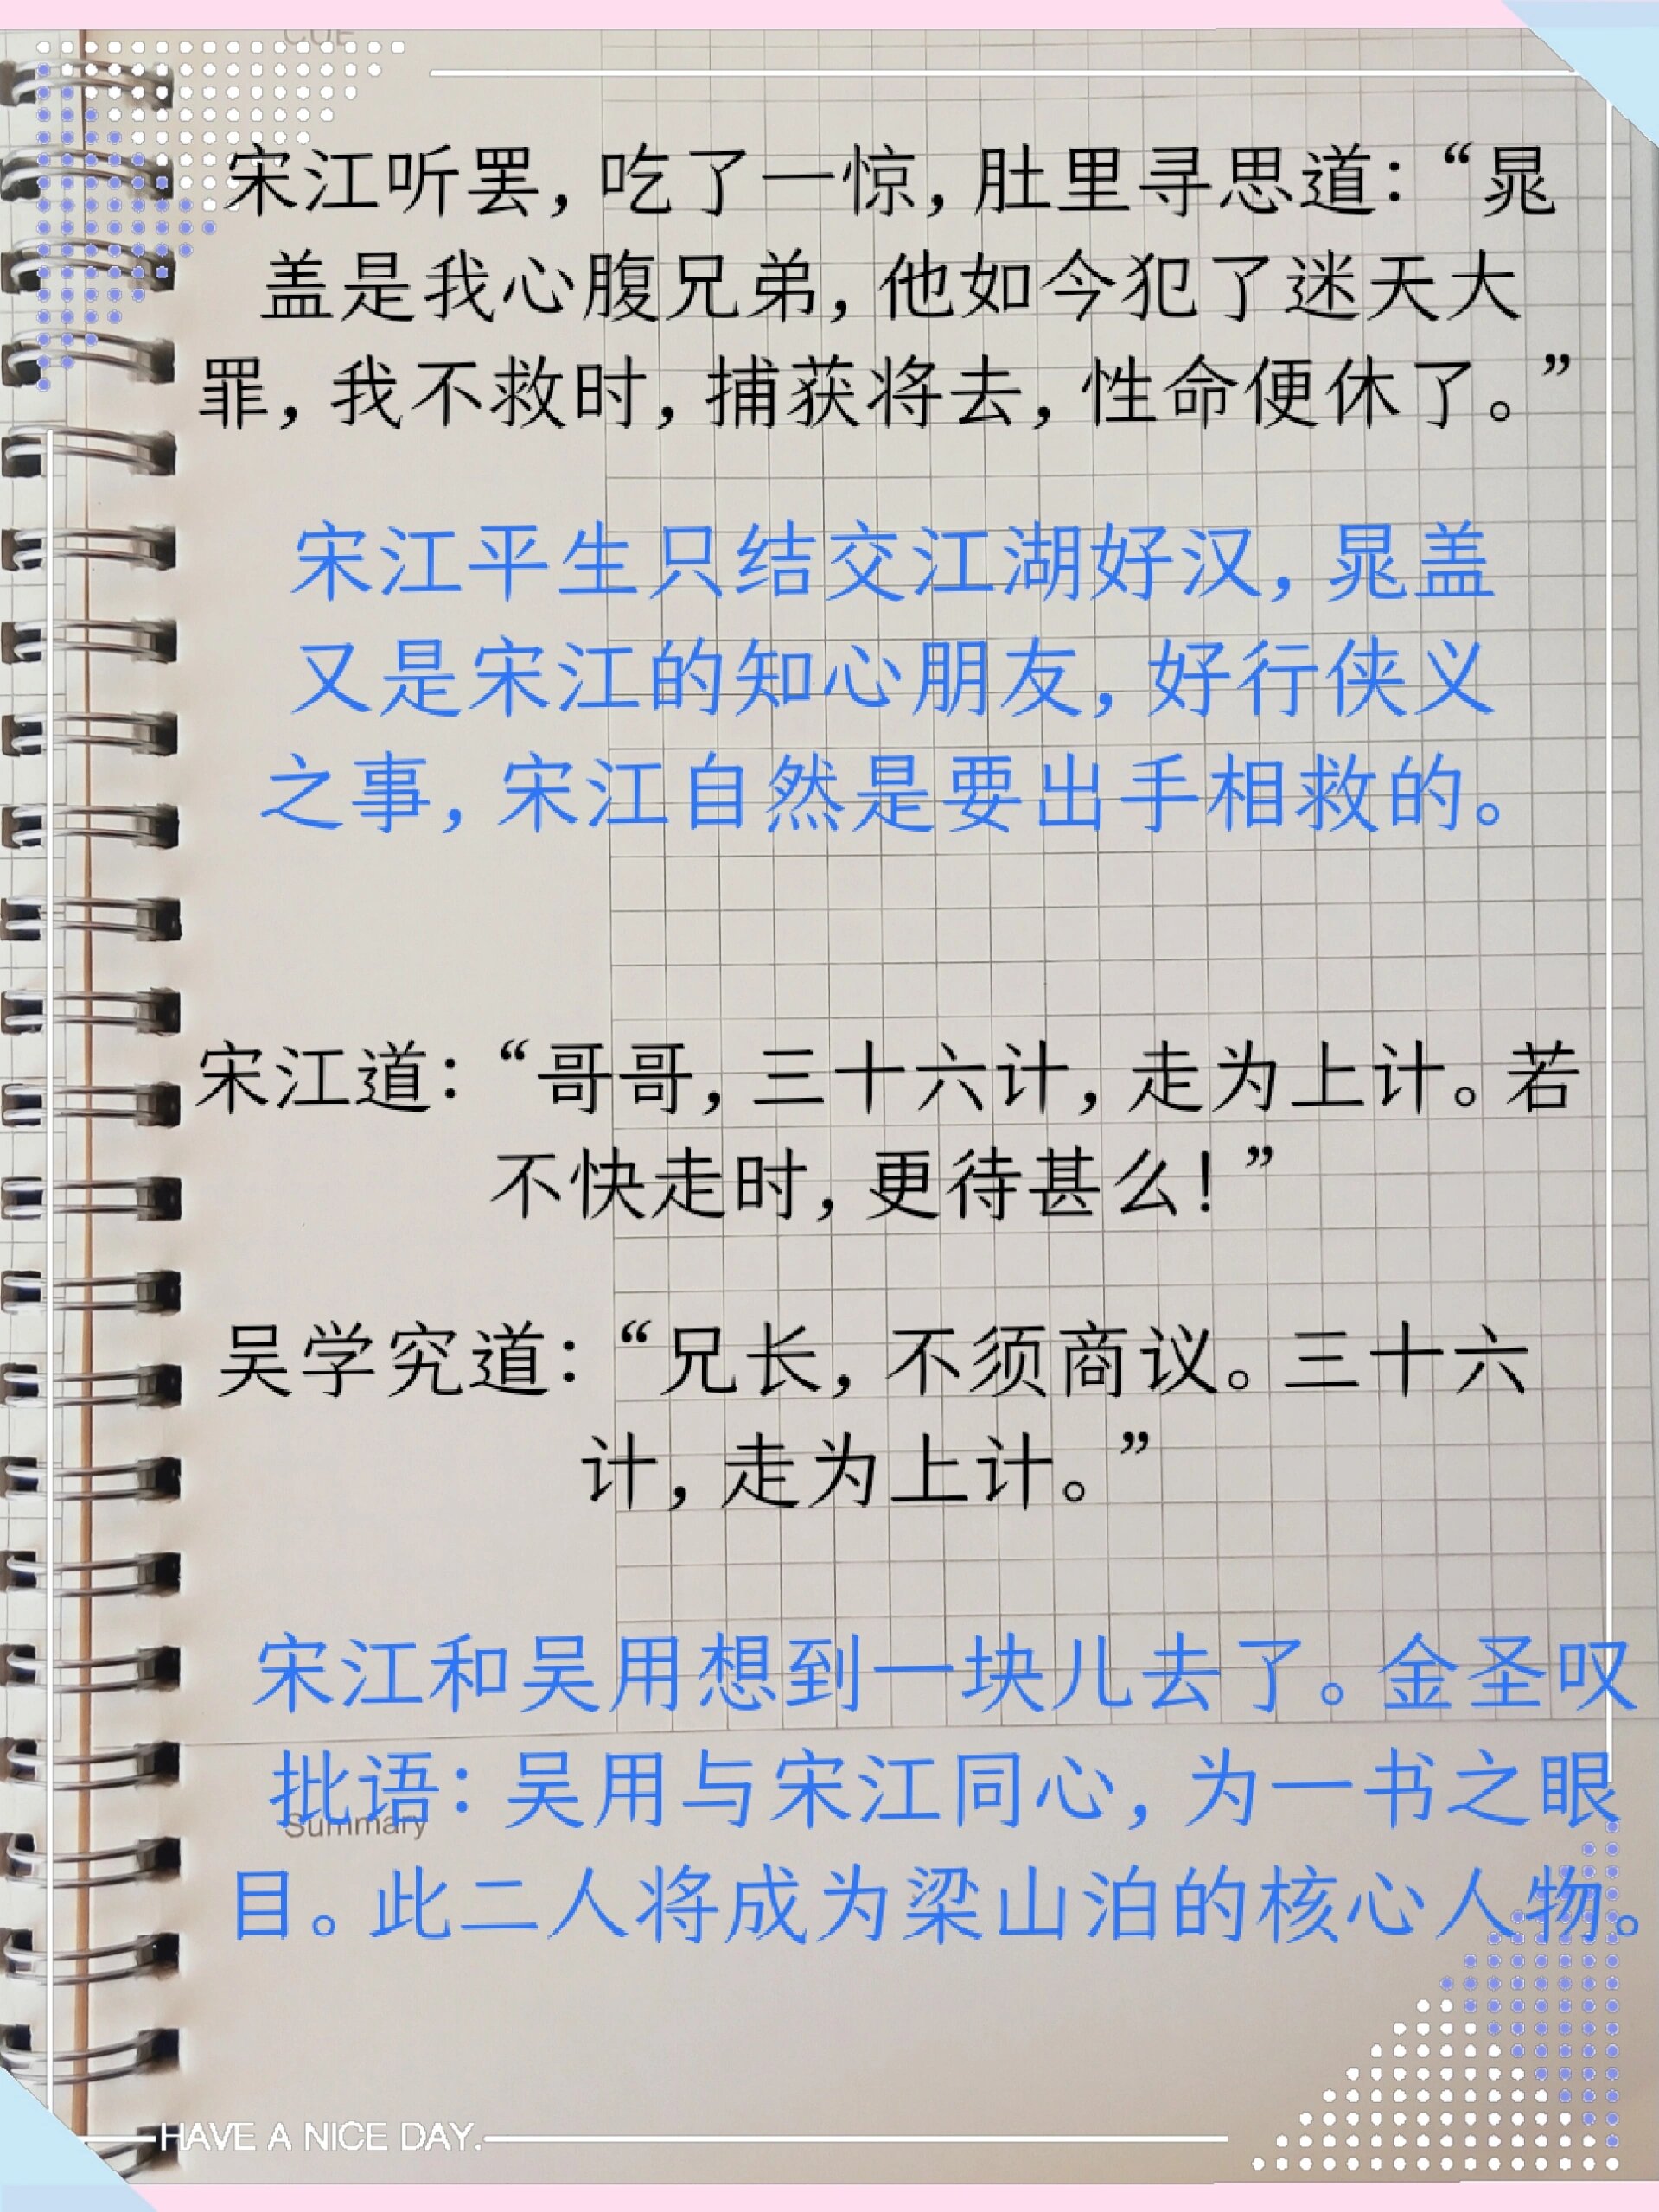 CUE
宋江听罢，吃了一惊，肚里寻思道：“晁
盖是我心腹兄弟，他如今犯了迷天大
罪，我不救时，捕获将去，性命便休了。”
宋江平生只结交江湖好汉，晁盖
又是宋江的知心朋友，好行侠义
之事，宋江自然是要出手相救的。
宋江道：“哥哥，三十六计，走为上计。若
不快走时，更待甚么！”
吴学究道：“兄长，不须商议。三十六
计，走为上计。”
宋江和吴用想到一块儿去了。金圣叹
批语：吴用与宋江同心，为一书之眼
Summary
目。此二人将成为梁山泊的核心人物。
HAVE A NICE DAY.